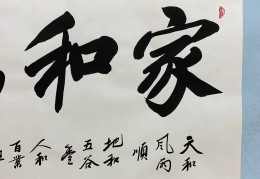 家和
天和
風雨
順
地和
五谷
登
人和
百業